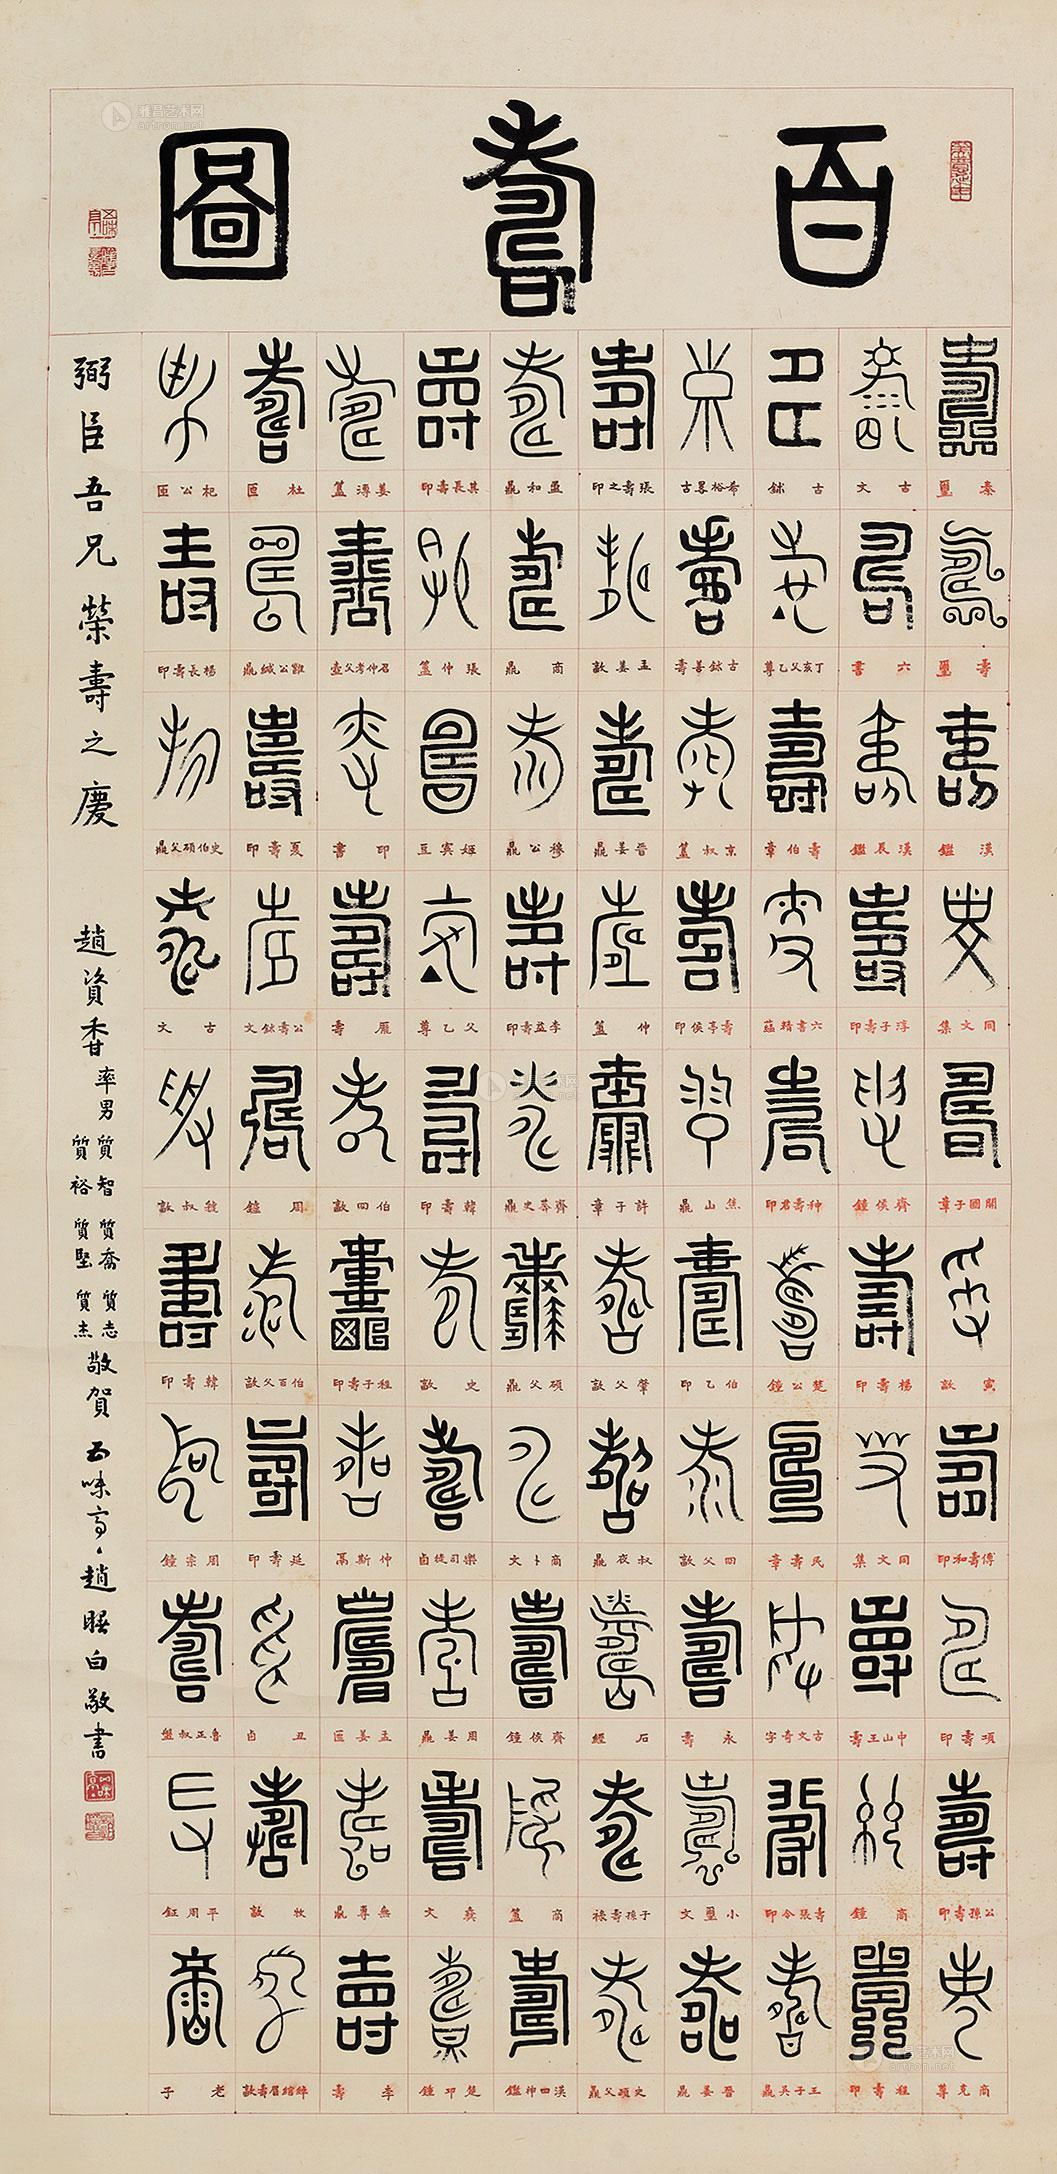 百壽圖
秦璽 古文 古鉥 希裕畧古 張壽之印 孟和鼎 其長壽印 姜漙蓋 杜匜 杞公匜
壽璽 六書 丁亥父乙尊 古鉥善壽 孟姜敦 商鼎 張仲簠 召仲考父壺 雝公緘鼎 楊長壽印
漢鑑 漢辰鑑 壽伯章 京叔蓋 晉姜鼎 穆公鼎 姬寏豆 印書 夏壽印 史伯碩父鼎
同文集 淳于壽印 六書精蘊 壽亭侯印 仲蓋 李益壽印 父乙尊 壽 公壽鉥文 古文
開國子章 齊侯鐘 种壽君印 焦山鼎 許子章 齊莽史鼎 韓壽印 伯囧敦 周鑑 虢叔敦
寅敦 楊壽印 楚公鐘 伯乙印 肇父敦 碩父鼎 史敦 程子壽印 伯百父敦 韓壽印
傅壽和印 同文集 民壽章 囧父敦 叔夜鼎 商卜文 樂司徒卣 仲斯鬲 延壽印 周宗鐘
項壽印 中山王壽 古文奇字 永壽 石經 齊侯鐘 周姜鼎 孟姜匜 丑卣 魯正叔盤
公孫壽印 商鐘 壽張令印 小璽文 子孫壽祿 商蓋 文 無專鼎 牧敦 平周鉦
商克尊 程壽印 王子吳鼎 晉姜鼎 史碩父鼎 漢四神鑑 楚邛鐘 李壽 綽綰眉壽敦 老子
弼臣吾兄榮壽之慶
趙資香率男質智質裕質喬質堅質志質杰敬賀 五味亭亭趙曙白敬書